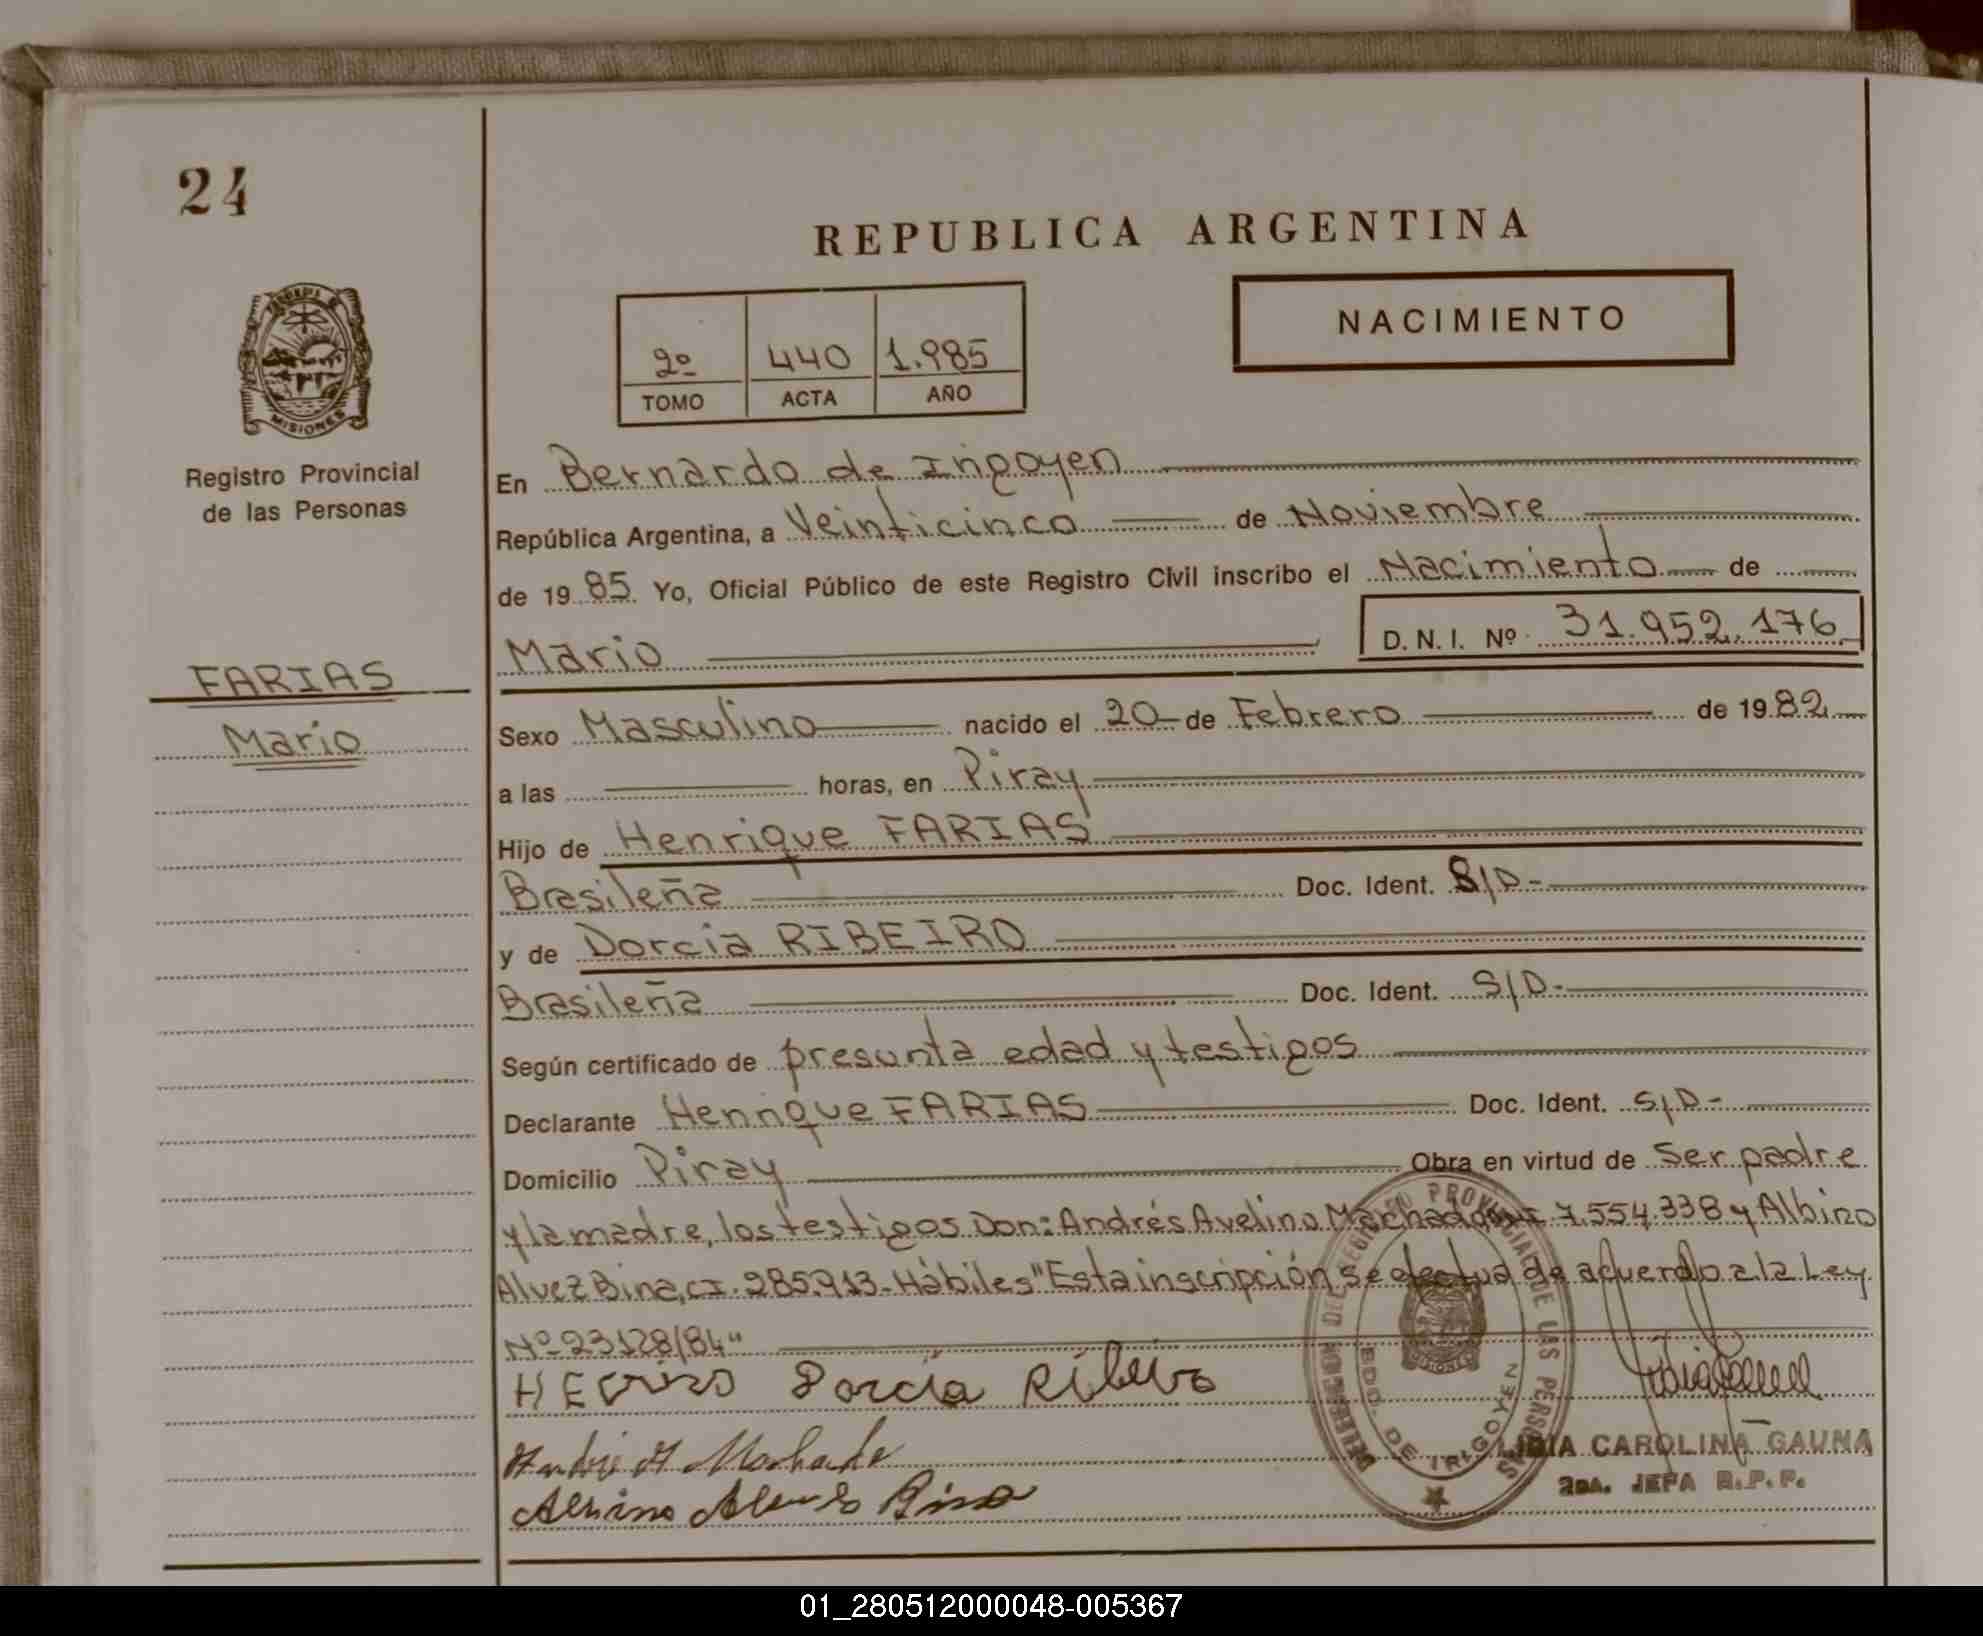 24
REPUBLICA ARGENTINA
NACIMIENTO
2º 440 1.985
TOMO ACTA AÑO
MISIONES
Registro Provincial
de las Personas
FARIAS
Mario
En Bernardo de Irigoyen
República Argentina, a Veinticinco de Noviembre
de 1985 Yo, Oficial Público de este Registro Civil inscribo el Nacimiento de
Mario D.N.I. Nº 31.952.176
Sexo Masculino nacido el 20 de Febrero de 1982
a las horas, en Piray
Hijo de Henrique FARIAS
Brasileña Doc. Ident. S/D-
y de Dorcia RIBEIRO
Brasileña Doc. Ident. S/D-
Según certificado de presunta edad y testigos
Declarante Henrique FARIAS Doc. Ident. S/D-
Domicilio Piray Obra en virtud de Ser padre
y la madre, los testigos Don: Andrés Avelino Machado 7.554.338 y Albino
Alvez Bina, CI. 285.913- Hábiles "Esta inscripción se efectua de acuerdo a la Ley
Nº 23128/84"
Dorcia Ribeiro
Machado
Bina
PROVINCIAL DE LAS PERSONAS
BDO. DE IRIGOYEN
MISIONES
LIDIA CAROLINA GAUNA
2DA. JEFA R.P.P.
01_280512000048-005367